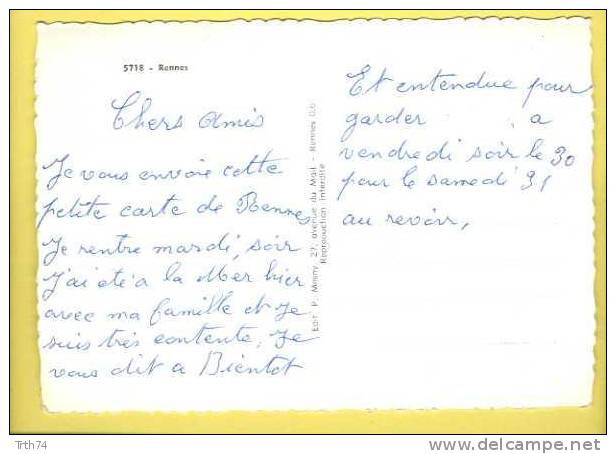 5718 - Rennes
Chers Amis
Je vous envoie cette
petite carte de Rennes
Je rentre mardi, soir
J'ai été a la Mer hier
avec ma famille et Je
suis très contente, Je
vous dit a Bientot
Edit. P. Mosny, 27, avenue du Mail - Rennes
Reproduction interdite
Et entendue pour
garder a
vendredi soir le 30
pour le samedi 31
au revoir,
Trth74
www.delcampe.net